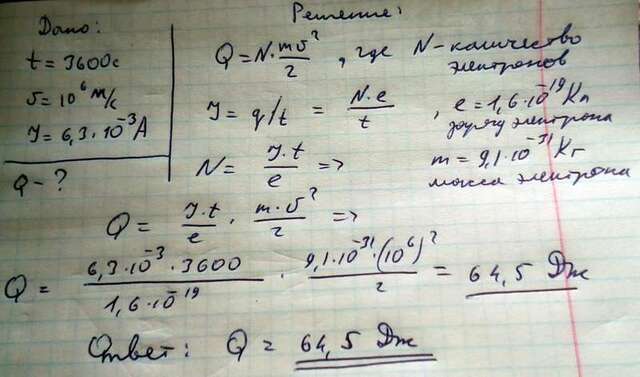 Дано:
t = 3600с
υ = 10⁶ м/с
J = 6,3·10⁻³ А
Q - ?
Решение:
Q = N·mυ²/2, где N - количество
электронов
J = q/t = N·e/t, e = 1,6·10⁻¹⁹ Кл
заряд электрона
N = J·t/e => m = 9,1·10⁻³¹ Кг
масса электрона
Q = J·t/e · m·υ²/2 =>
Q = 6,3·10⁻³·3600/1,6·10⁻¹⁹ · 9,1·10⁻³¹·(10⁶)²/2 = 64,5 Дж
Ответ: Q = 64,5 Дж